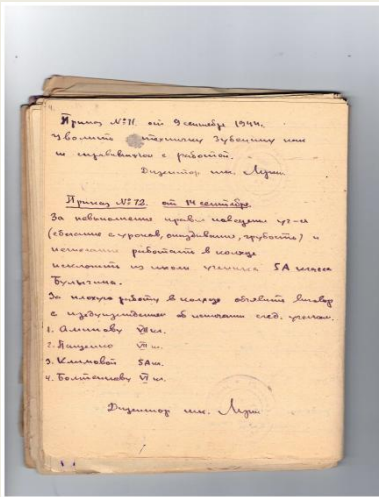 Приказ №11 от 9 сентября 1944г.
Уволить техничку Зубецких как
не справившихся с работой.
Директор шк.
Приказ №12 от 14 сентября.
За невыполнение правил поведения уч-ся
(сбегание с уроков, опоздывание, грубость) и
нежелание работать в колхозе
исключить из школы ученика 5А класса
Булычина.
За плохую работу в колхозе объявить выговор
с предупреждением об исключении след. ученикам.
1. Аминову VII кл.
2. Ященко VII кл.
3. Климовой 5А кл.
4. Болтенкову VI кл.
Директор шк.